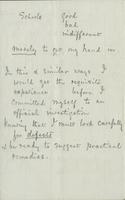 Schools good
bad
indifferent
merely to get my hand in
In this & similar ways I
would get the requisite
experience before I
committed myself to an
official investigation
Knowing that I must look carefully
for defects
& be ready to suggest practical
remedies.